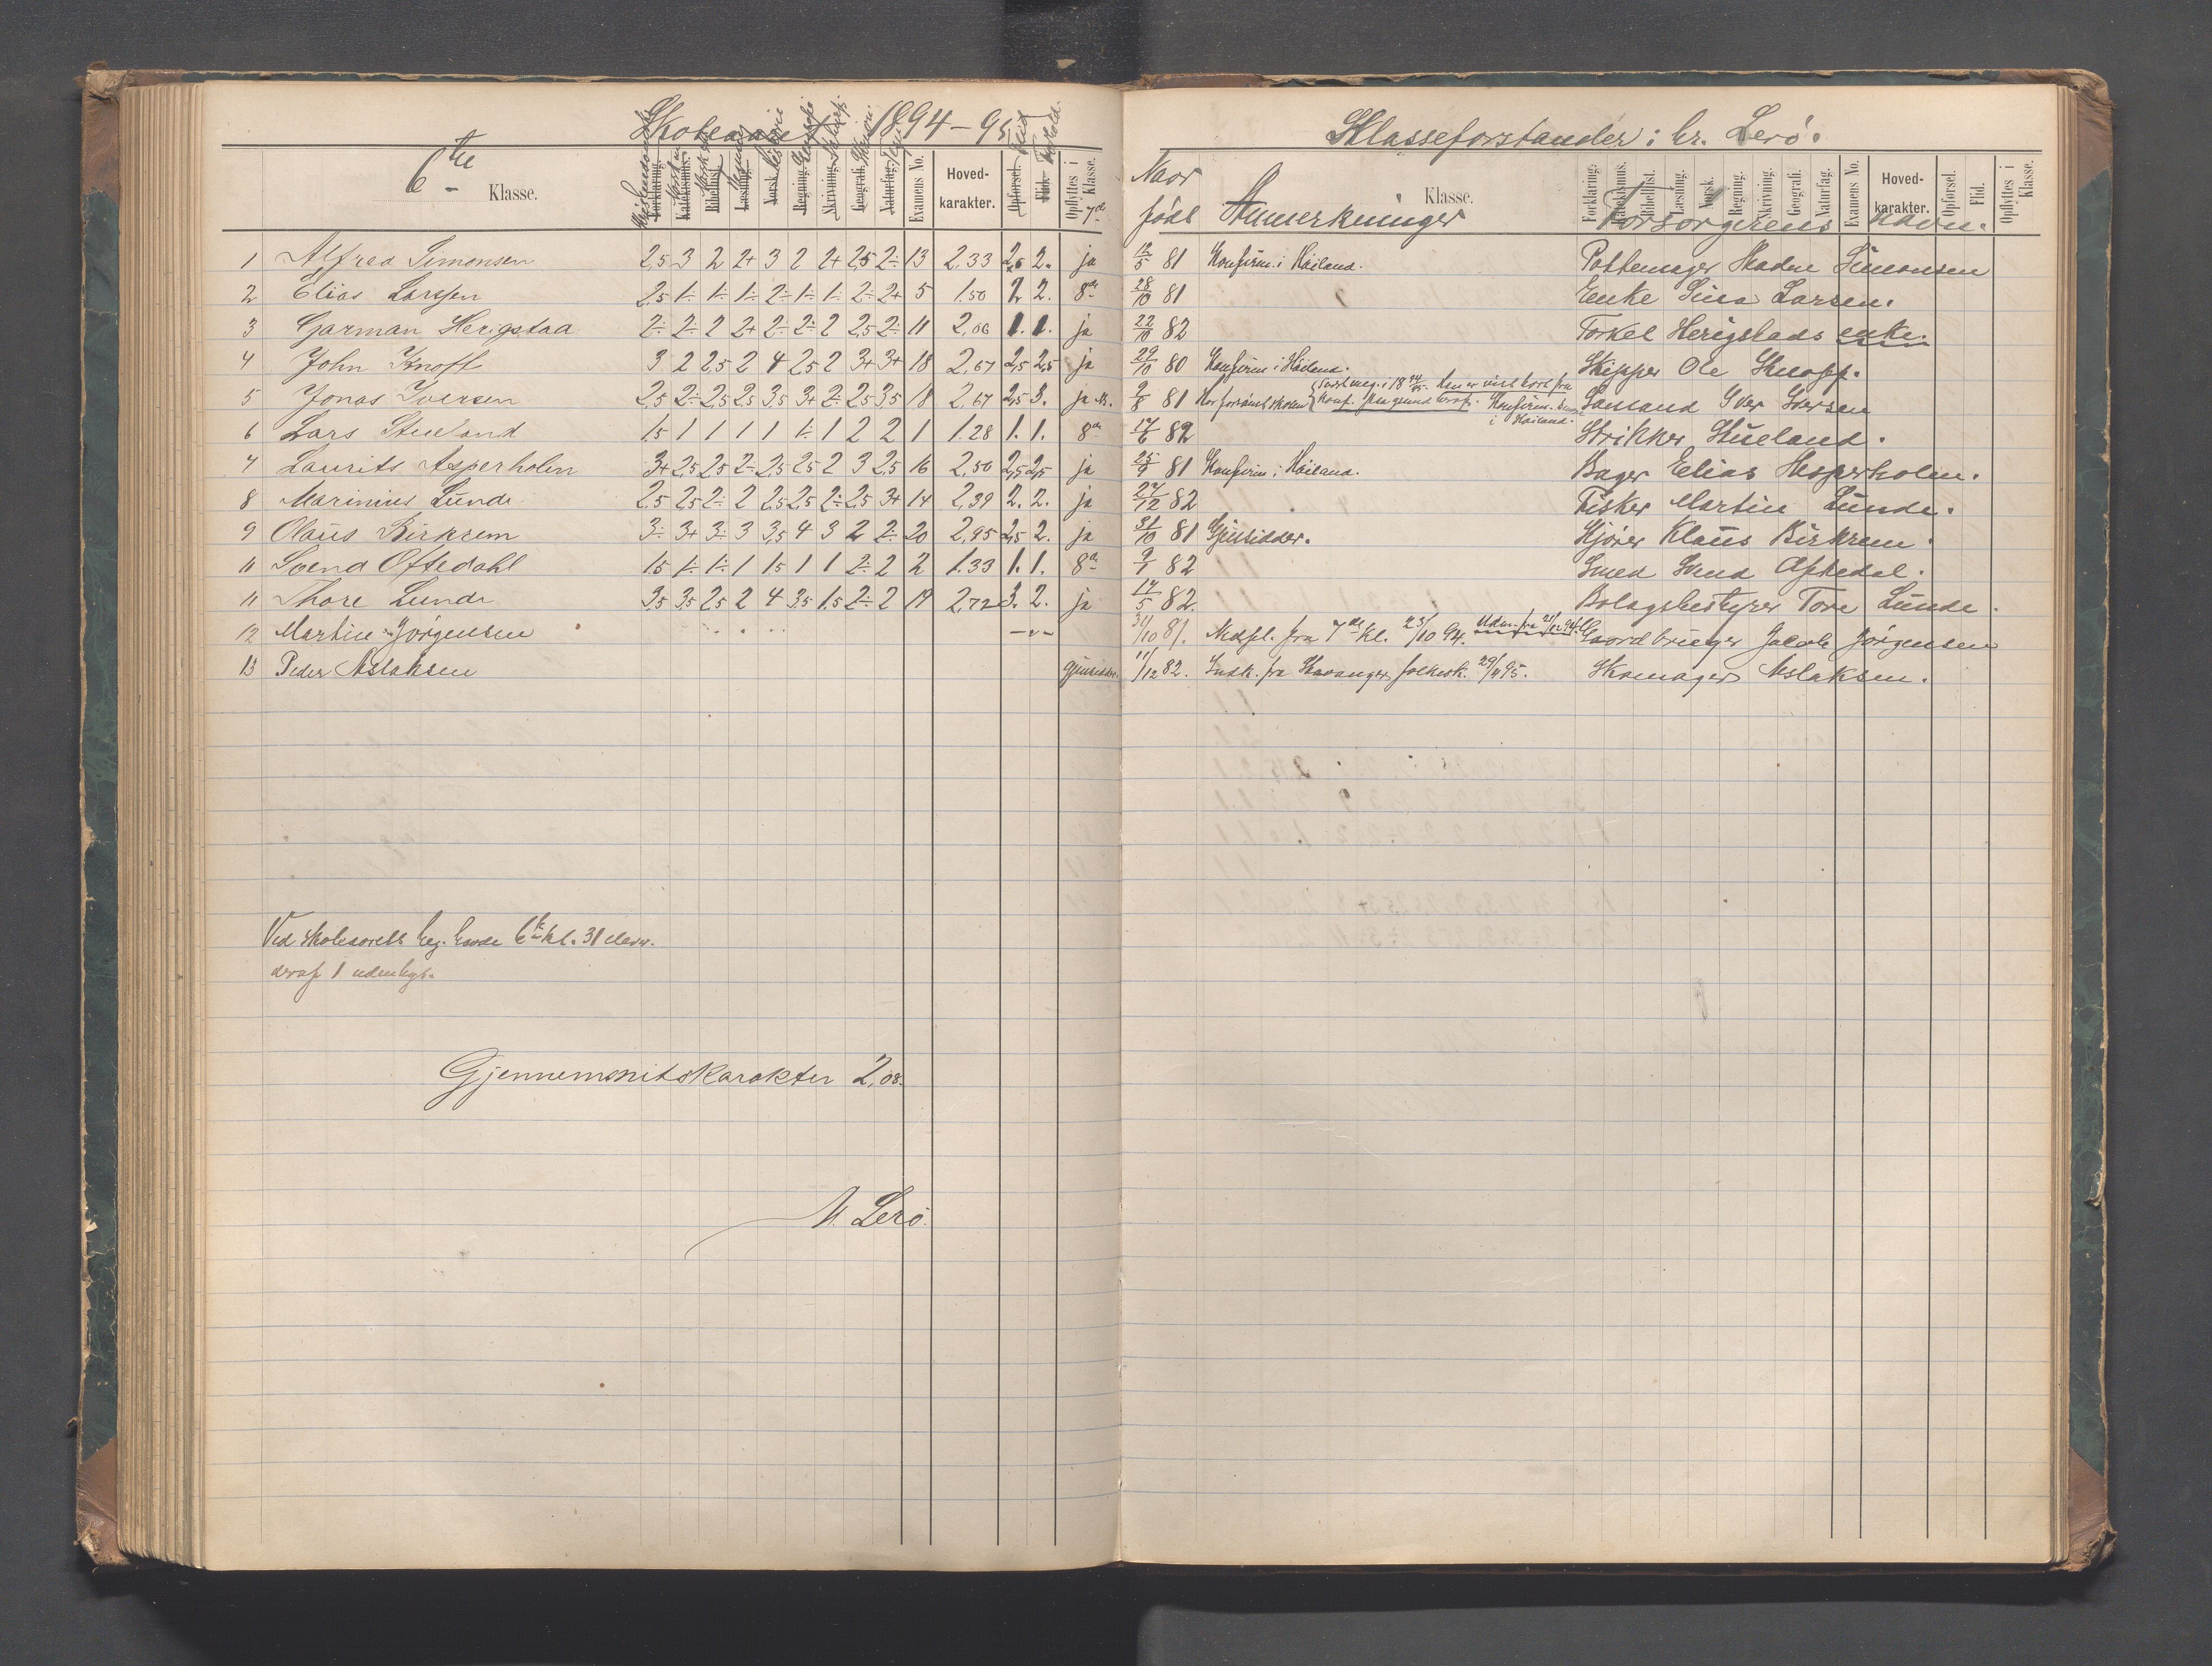 Skoleaaret 1894-95
6te Klasse.
Forklaring. Katekismus. Bibelhist. Læsning. Norsk. Regning. Skrivning. Geografi. Naturfag. Examens No. Hoved-karakter. Opførsel. Flid. Opflyttes i 7de Klasse.
1 Alfred Simonsen 2,5 3 2 2+ 3 2 2+ 2,5 2÷ 13 2.33 2,5 2. ja
2 Elias Larsen 2,5 1÷ 1÷ 1÷ 2÷ 1÷ 1÷ 2÷ 2+ 5 1.50 2 2. 8de
3 Garman Herigstad 2÷ 2÷ 2 2+ 2÷ 2÷ 2 2,5 2÷ 11 2,06 1. 1. ja
4 John Knoff 3 2 2,5 2 4 2,5 2 3+ 3+ 18 2,67 2,5 2,5 ja
5 Jonas Iversen 2,5 2÷ 2,5 2,5 3,5 3+ 2÷ 2,5 3,5 18 2,67 2,5 3. ja
6 Lars Stueland 1,5 1 1 1 1 1÷ 1 2 2 1 1.28 1. 1. 8de
7 Laurits Asperholm 3+ 2,5 2,5 2÷ 2,5 2,5 2 3 2,5 16 2,50 2,5 2,5 ja
8 Marinius Lunde 2,5 2,5 2÷ 2 2,5 2,5 2÷ 2,5 3+ 14 2,39 2. 2. ja
9 Olaus Birkrem 3÷ 3+ 3÷ 3 3,5 4 3 2 2÷ 20 2,95 2,5 2. ja
11 Svend Oftedahl 1,5 1÷ 1÷ 1 1,5 1 1 2÷ 2 2 1.33 1. 1. 8de
11 Thore Lunde 3,5 3,5 2,5 2 4 3,5 1,5 2÷ 2 19 2,72 3. 2. ja
12 Martin Jørgensen -"-
13 Peder Aslaksen Gjensidder.
Ved skoleaarets beg. havde 6te kl. 31 elever.
deraf 1 udenbys.
Gjennemsnitskarakter 2,08.
M. Lerø.
Klasseforstander: hr. Lerø.
Naar født Anmerkninger Klasse. Forsørgerens navn.
Forklaring. Katekismus. Bibelhist. Læsning. Norsk. Regning. Skrivning. Geografi. Naturfag. Examens No. Hoved-karakter. Opførsel. Flid. Opflyttes i Klasse.
12/5 81 Konfirm. i Høiland. Pottemager Maden Simonsen
28/10 81 Enke Sina Larsen.
22/10 82 Torkel Herigstads enke.
29/10 80 Konfirm. i Høiland. Skipper Ole Knoff.
2/8 81 Har forsømt skolen Konfirm. i Høiland. Iver Iversen
17/6 82 Strikker Stueland.
25/9 81 Konfirm. i Høiland. Bager Elias Hesperholm.
27/12 82 Fisker Martin Lunde.
31/10 81 Gjensidder. Kjører Klaus Birkrem.
9/1 82 Smed Svend Oftedal.
17/5 82. Bolagsbestyrer Tore Lunde.
31/10 81. Nedfl. fra 7de kl. 23/10 94. Gaardbruger Jacob Jørgensen
11/12 82. Indk. fra Stavanger folkesk. 29/4 95. Skomager Aslaksen.